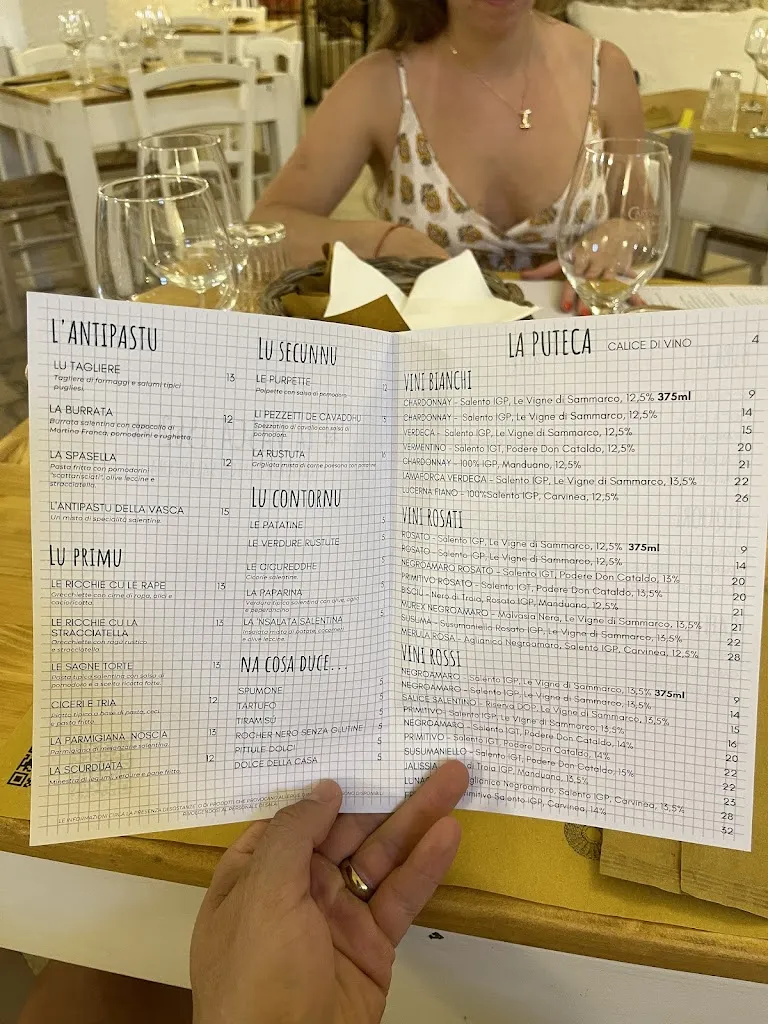 L'ANTIPASTU
LU TAGLIERE 13
Tagliere di formaggi e salumi tipici
pugliesi.
LA BURRATA 12
Burrata salentina con capocollo di
Martina Franca, pomodorini e rughetta.
LA SPASELLA 12
Pasta fritta con pomodorini
"scattarisciati", olive leccine e
stracciatella.
L'ANTIPASTU DELLA VASCA 15
Un mista di specialità salentine.
LU PRIMU
LE RICCHIE CU LE RAPE 13
Orecchiette con cime di rapa, alici e
cacioricotta.
LE RICCHIE CU LA 13
STRACCIATELLA
Orecchiette con ragù rustico
e stracciatella.
LE SAGNE TORTE 13
Pasta tipica salentina con salsa di
pomodoro e a scelta ricotta forte.
CICERI E TRIA 12
Piatto tipico a base di pasta, ceci
e pasta fritta.
LA PARMIGIANA NOSCIA 13
Parmigiana di melanzane salentina.
LA SCURDIJATA 12
Minestra di legumi, verdure e pane fritto.
LU SECUNNU
LE PURPETTE 12
Polpette con salsa di pomodoro.
LI PEZZETTI DE CAVADDHU
Spezzatino di cavallo con salsa di
pomodoro.
LA RUSTUTA
Grigliata mista di carne paesana con patatine
LU CONTORNU
LE PATATINE 5
LE VERDURE RUSTUTE 5
LE CICUREDDHE 5
Cicorie salentine.
LA PAPARINA 5
Verdura tipica salentina con olive, aglio
e peperoncino.
LA 'NSALATA SALENTINA 5
Insalata mista di patate, cocomeri
e olive leccine.
NA COSA DUCE...
SPUMONE 5
TARTUFO 5
TIRAMISÙ 5
ROCHER NERO SENZA GLUTINE 5
PITTULE DOLCI 5
DOLCE DELLA CASA 5
LE INFORMAZIONI CIRCA LA PRESENZA DI SOSTANZE O DI PRODOTTI CHE PROVOCANO ALLERGIE
RIVOLGENDOSI AL PERSONALE DI SALA
LA PUTECA CALICE DI VINO 4
VINI BIANCHI
CHARDONNAY - Salento IGP, Le Vigne di Sammarco, 12,5% 375ml 9
CHARDONNAY - Salento IGP, Le Vigne di Sammarco, 12,5% 14
VERDECA - Salento IGP, Le Vigne di Sammarco, 12,5% 15
VERMENTINO - Salento IGT, Podere Don Cataldo, 12,5% 20
CHARDONNAY - 100% IGP, Manduano, 12,5% 21
LAMAFORCA VERDECA - Salento IGP, Le Vigne di Sammarco, 13,5% 22
LUCERNA FIANO - 100%Salento IGP, Carvinea, 12,5% 26
VINI ROSATI
ROSATO - Salento IGP, Le Vigne di Sammarco, 12,5% 375ml 9
ROSATO - Salento IGP, Le Vigne di Sammarco, 12,5% 14
NEGROAMARO ROSATO - Salento IGT, Podere Don Cataldo, 13% 20
PRIMITIVO ROSATO - Salento IGT, Podere Don Cataldo, 13,5% 20
BISCIÙ - Nero di Troia, Rosato IGP, Manduano, 12,5% 21
MUREX NEGROAMARO - Malvasia Nera, Le Vigne di Sammarco, 13,5% 21
SUSUMA - Susumaniello Rosato IGP, Le Vigne di Sammarco, 13,5% 22
MERULA ROSA - Aglianico Negroamaro, Salento IGP, Carvinea, 12,5% 28
VINI ROSSI
NEGROAMARO - Salento IGP, Le Vigne di Sammarco, 13,5% 375ml 9
NEGROAMARO - Salento IGP, Le Vigne di Sammarco, 13,5% 14
SALICE SALENTINO - Riserva DOP, Le Vigne di Sammarco, 13,5% 15
PRIMITIVO - Salento IGP, Le Vigne di Sammarco, 14% 16
NEGROAMARO - Salento IGT, Podere Don Cataldo, 14% 20
PRIMITIVO - Salento IGT, Podere Don Cataldo, 15% 22
SUSUMANIELLO - Salento IGT, Podere Don Cataldo 22
JALISSIA di Troia IGP, Manduano, 13,5% 23
Aglianico Negroamaro, Salento IGP, Carvinea, 13,5% 28
Primitivo Salento IGP, Carvinea, 14% 32